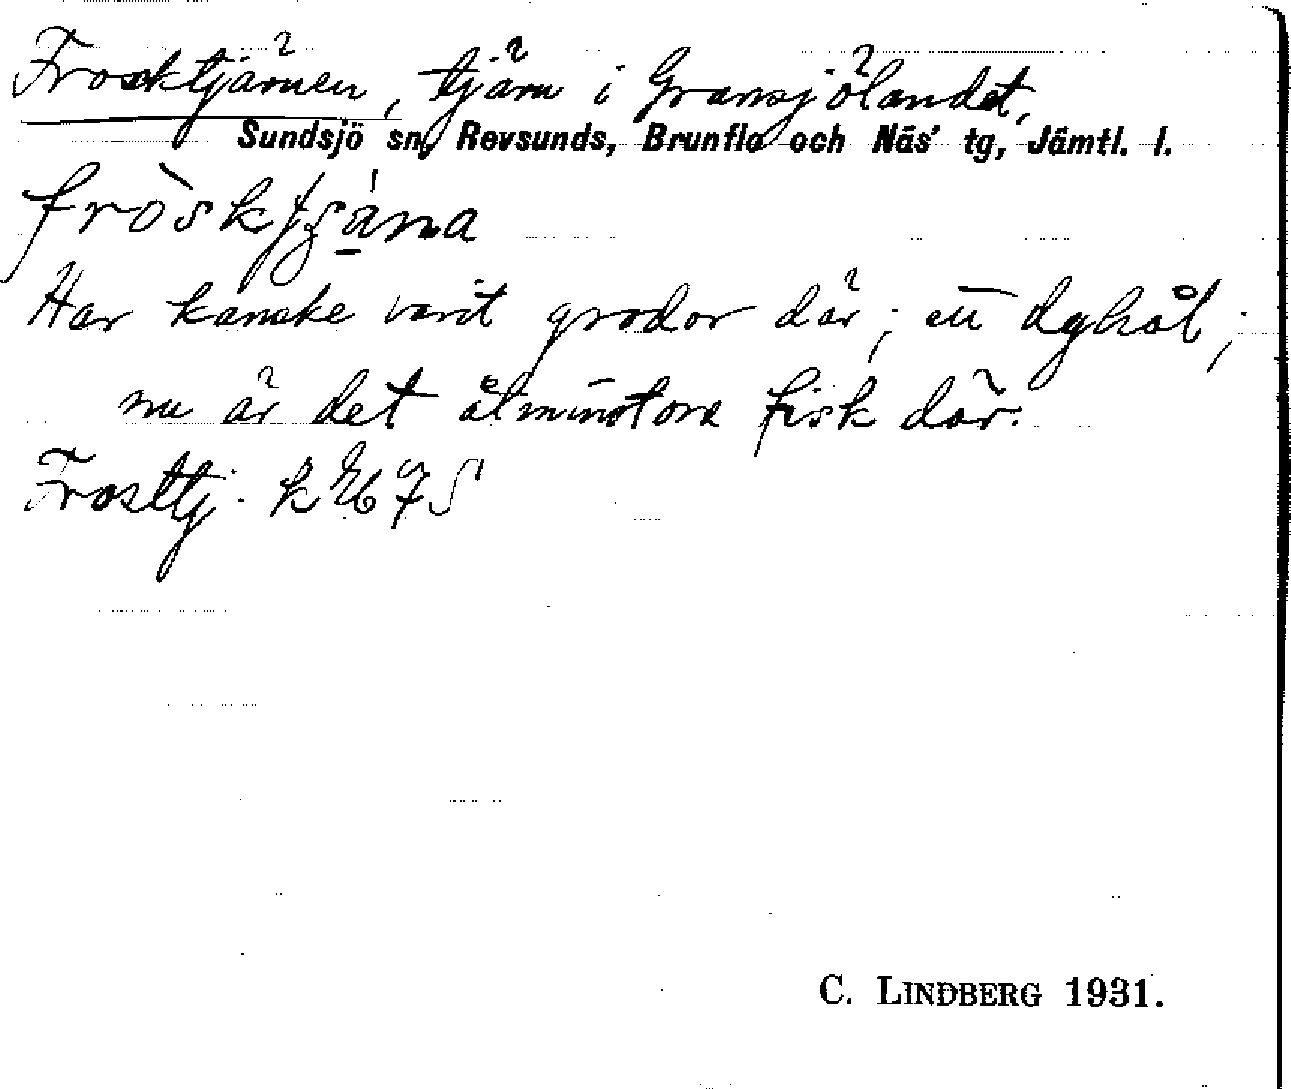 Frosktjärnen, tjärn i Gransjölandet,
Sundsjö sn, Revsunds, Brunflo och Näs' tg, Jämtl. l.
Har kanske varit grodor där; ett dyhål;
nu är det åtminstone fisk där.
Frosttj. k
C. LINDBERG 1931.